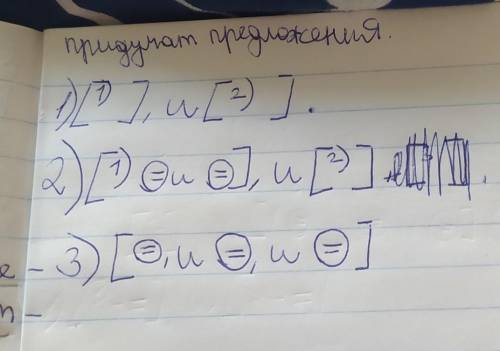 придумат предложения.
1) [1) ], и [2) ].
2) [1) ⊜ и ⊜], и [2) ] .
е – 3) [⊜, и ⊜, и ⊜]
п –